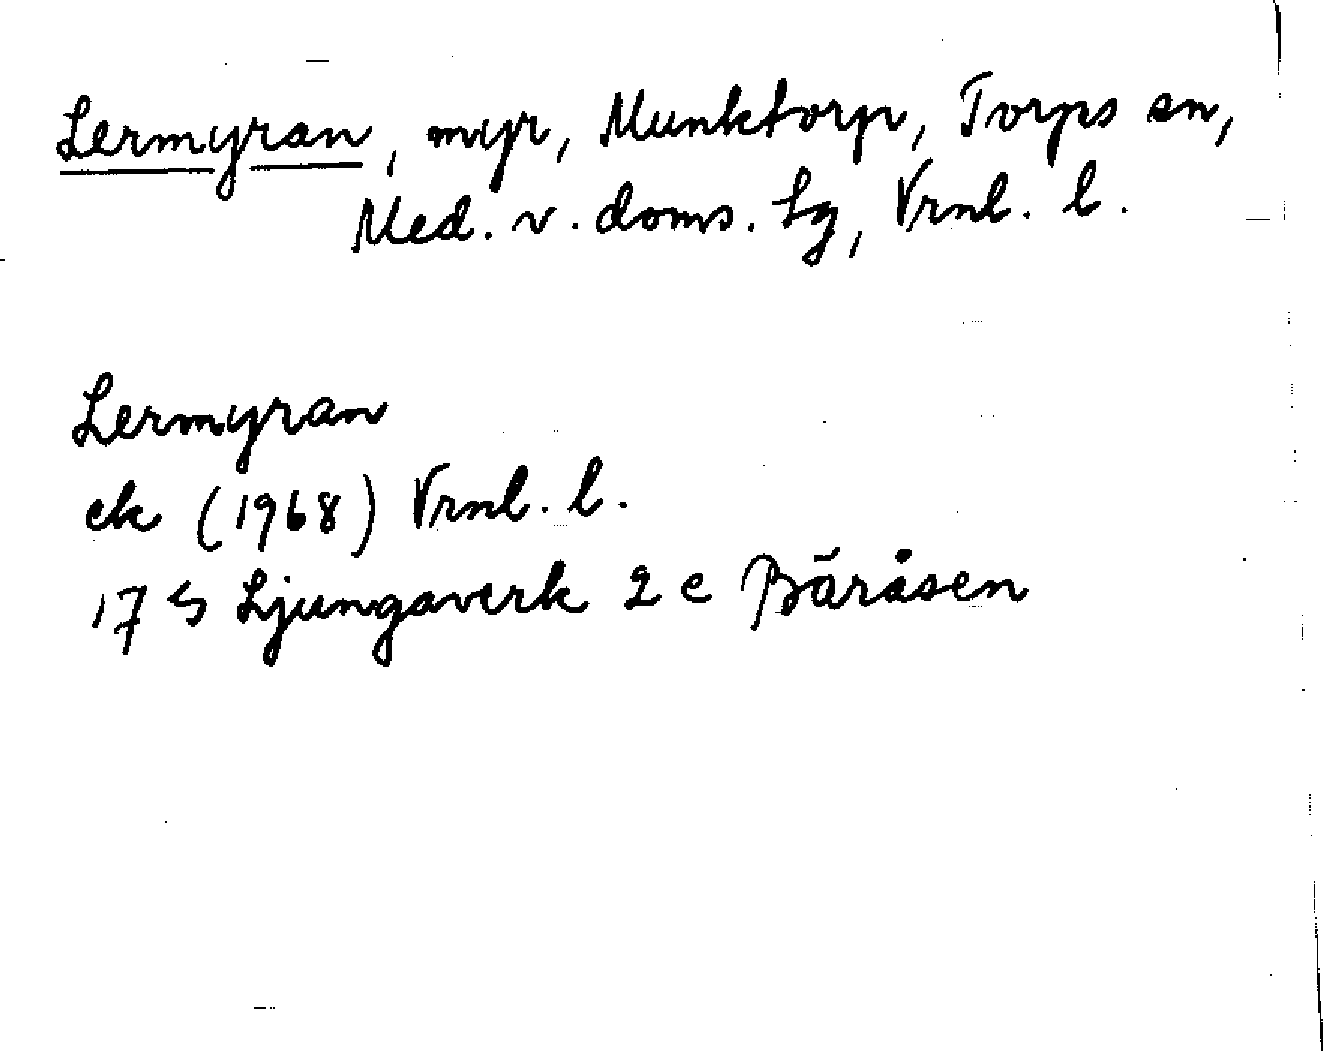 Lermyran, myr, Munktorp, Torps sn,
Med. v. doms. hg, Vrnl. l.
Lermyran
ek (1968) Vrnl. l.
17 S Ljungaverk 2 e Bäråsen